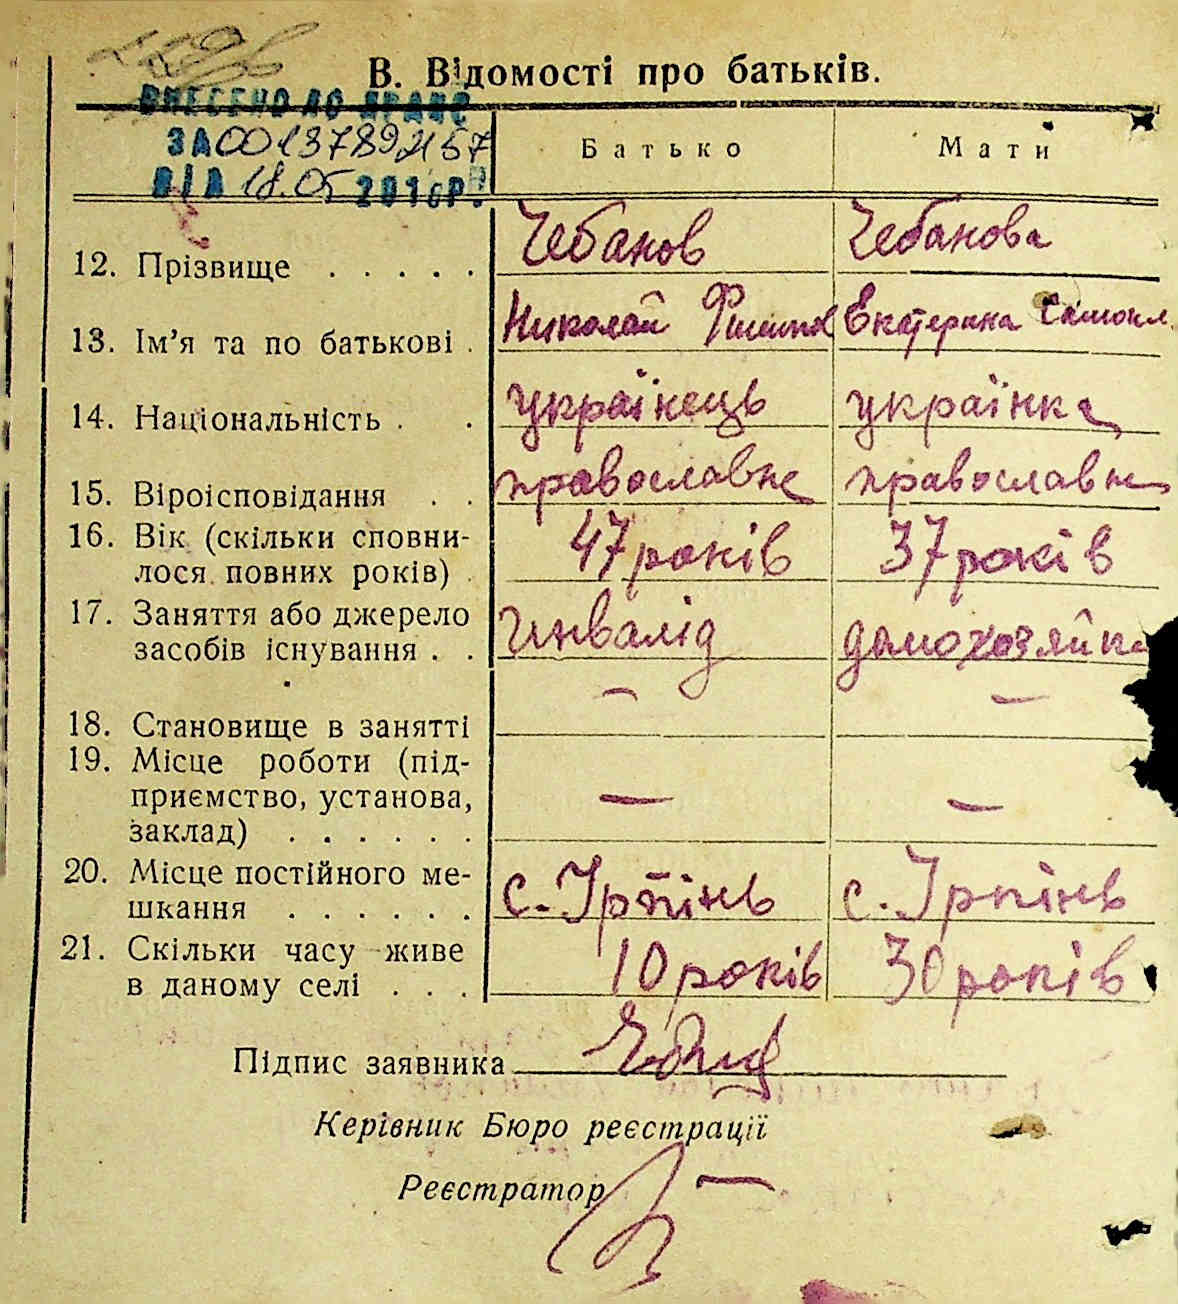 В. Відомості про батьків.
ВНЕСЕНО ДО ДРАЦС
ЗА 00137892157
ВІД 18.05 2016 Р.
Батько Мати
12. Прізвище . . . . . Чебанов Чебанова
13. Ім’я та по батькові . Николай Екатерина
14. Національність . . українець українка
15. Віроісповідання . . православне православне
16. Вік (скільки сповни-
лося повних років) . 47 років 37 років
17. Заняття або джерело
засобів існування . . инвалід домохозяйка
18. Становище в занятті — —
19. Місце роботи (під-
приємство, установа,
заклад) . . . . . . — —
20. Місце постійного ме-
шкання . . . . . . с. Ірпінь с. Ірпінь
21. Скільки часу живе
в даному селі . . . 10 років 30 років
Підпис заявника
Керівник Бюро реєстрації
Реєстратор —